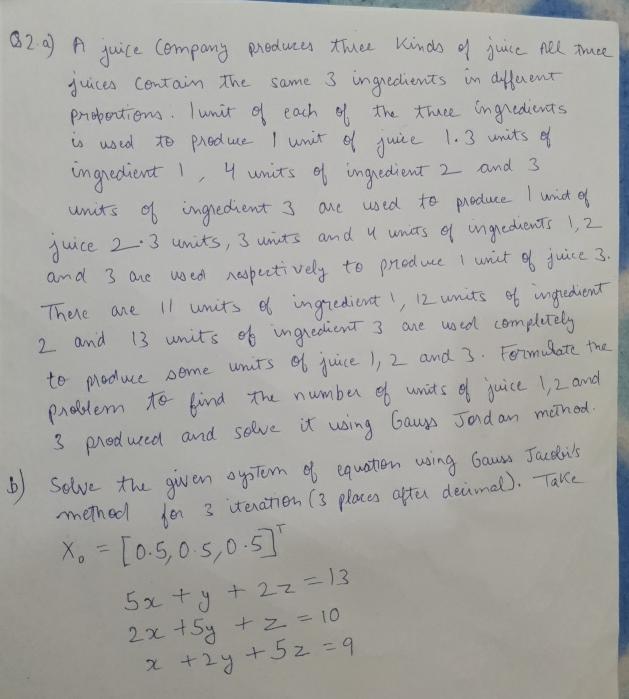 Q2.a) A juice Company produces three kinds of juice All three
juices contain the same 3 ingredients in different
proportions. 1 unit of each of the three ingredients
is used to produce 1 unit of juice 1. 3 units of
ingredient 1, 4 units of ingredient 2 and 3
units of ingredient 3 are used to produce 1 unit of
juice 2. 3 units, 3 units and 4 units of ingredients 1, 2
and 3 are used respectively to produce 1 unit of juice 3.
There are 11 units of ingredient 1, 12 units of ingredient
2 and 13 units of ingredient 3 are used completely
to produce some units of juice 1, 2 and 3. Formulate the
problem to find the number of units of juice 1, 2 and
3 produced and solve it using Gauss Jordan method.
b) Solve the given system of equation using Gauss Jacobi's
method for 3 iteration (3 places after decimal). Take
X₀ = [0.5, 0.5, 0.5]ᵀ
5x + y + 2z = 13
2x + 5y + z = 10
x + 2y + 5z = 9